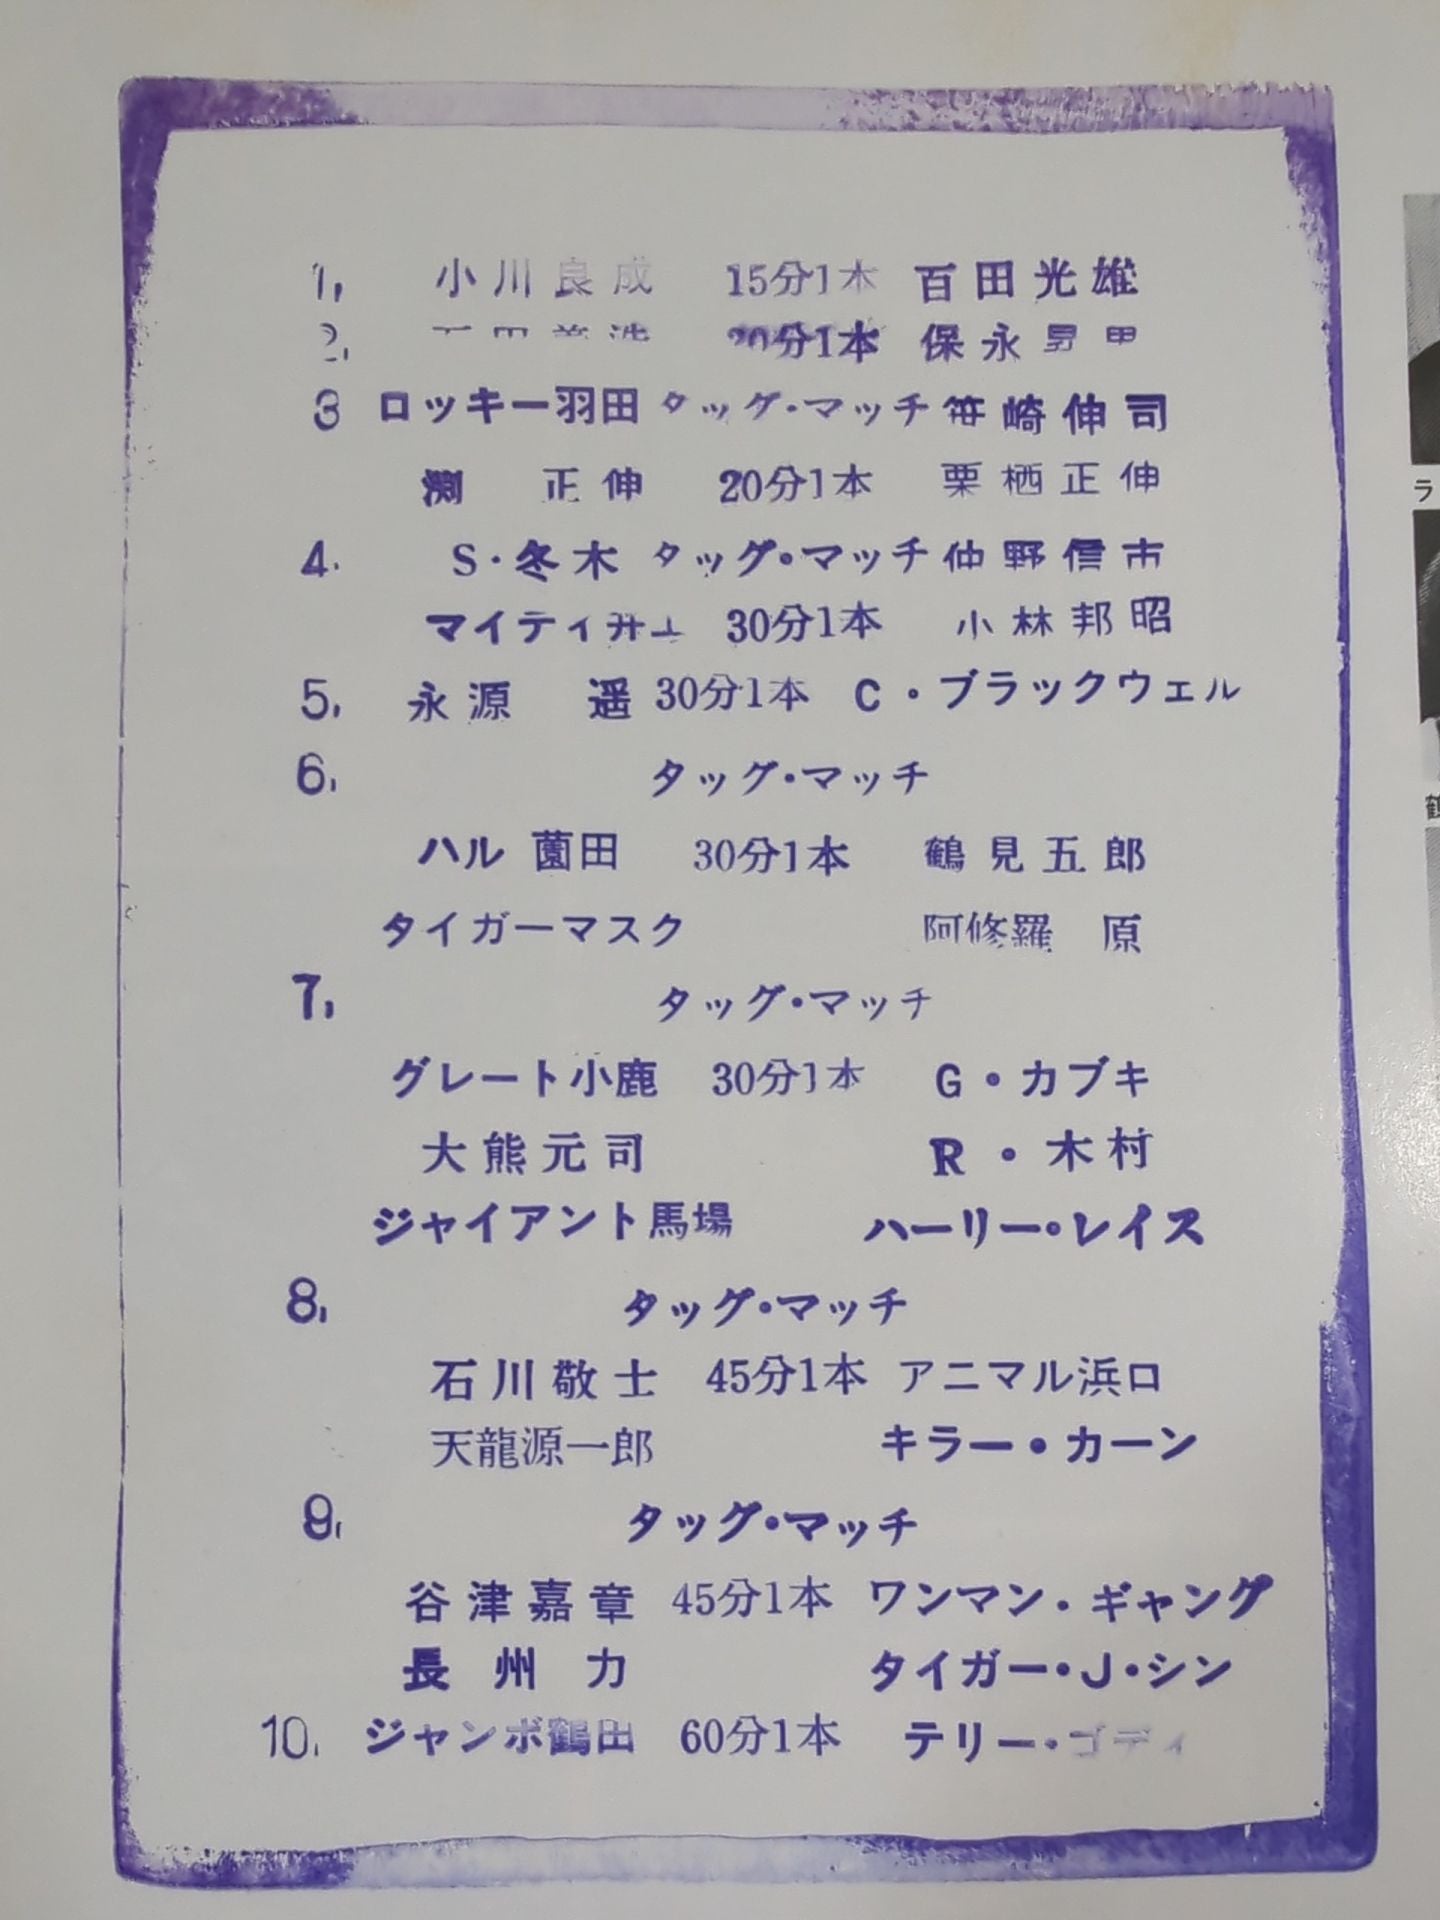 1, 小川良成 15分1本 百田光雄
2, 20分1本 保永昇男
3 ロッキー羽田 タッグ・マッチ 笹崎伸司
渕 正伸 20分1本 栗栖正伸
4. S・冬木 タッグ・マッチ 仲野信市
マイティ井上 30分1本 小林邦昭
5, 永源 遥 30分1本 C・ブラックウェル
6, タッグ・マッチ
ハル薗田 30分1本 鶴見五郎
タイガーマスク 阿修羅 原
7, タッグ・マッチ
グレート小鹿 30分1本 G・カブキ
大熊元司 R・木村
ジャイアント馬場 ハーリー・レイス
8, タッグ・マッチ
石川敬士 45分1本 アニマル浜口
天龍源一郎 キラー・カーン
9, タッグ・マッチ
谷津嘉章 45分1本 ワンマン・ギャング
長州力 タイガー・J・シン
10, ジャンボ鶴田 60分1本 テリー・ゴディ
ラ
鶴